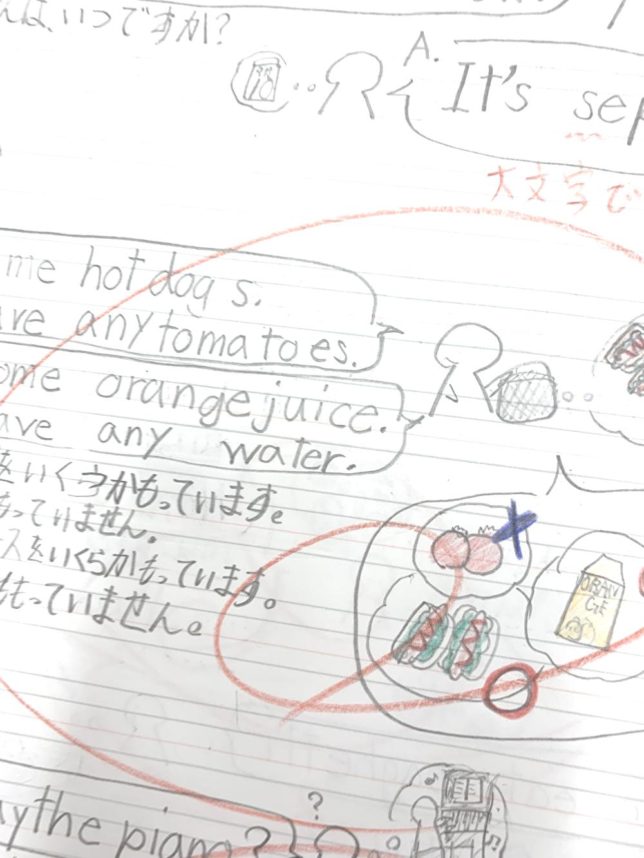 んは、いつですか?
A.
It's sep
大文字で
me hot dogs.
ve any tomatoes.
ome orange juice.
ave any water.
をいくつかもっています。
もっていません。
スをいくらかもっています。
ももっていません。
ORAN
GE
ythe piano?
?